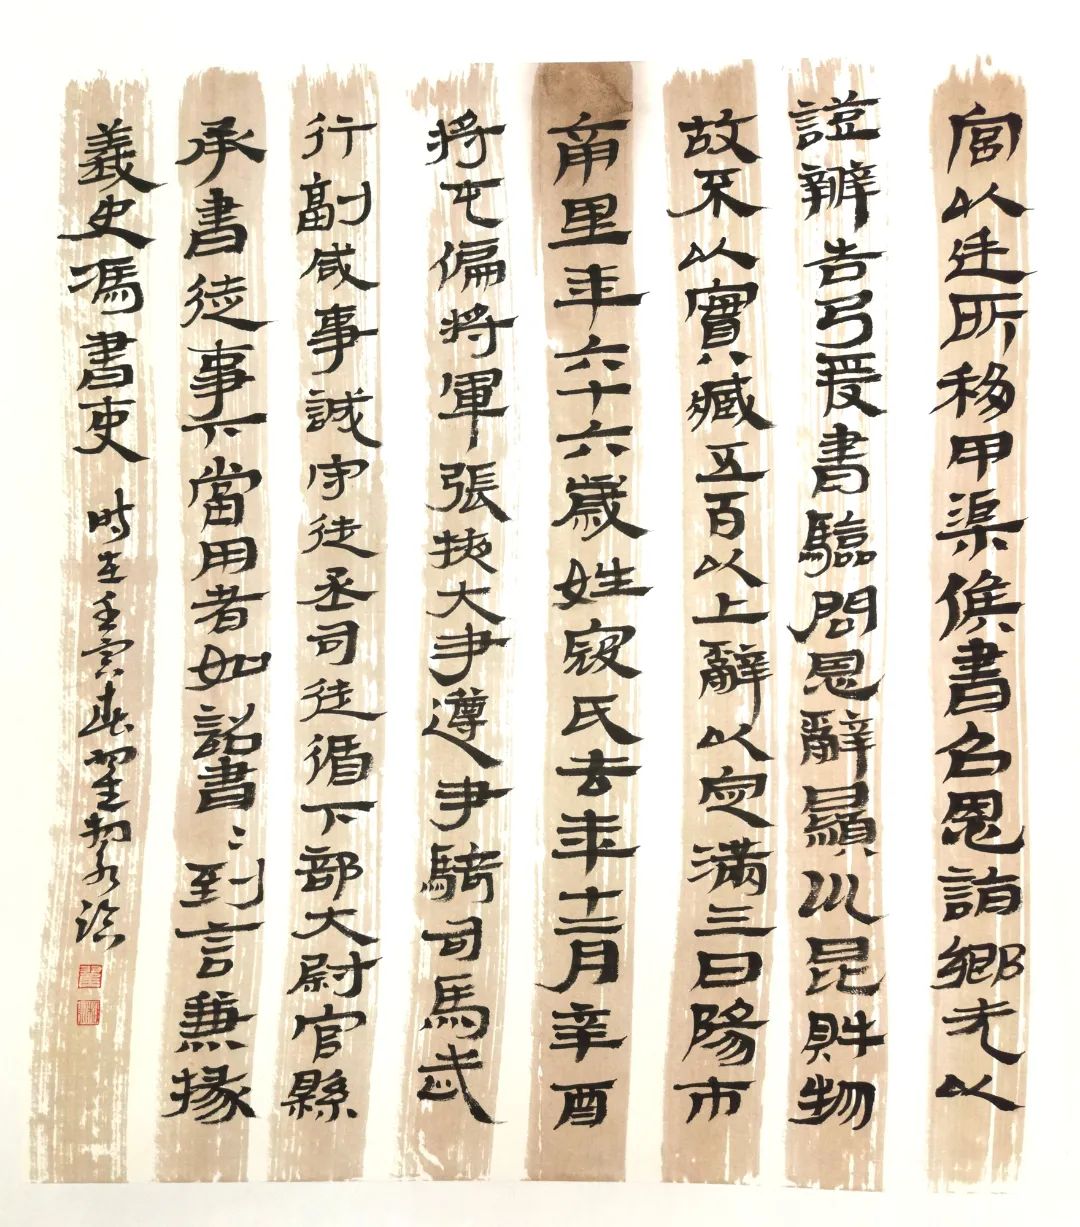 宫以廷所移甲渠候書召恩詣鄉先以
證辨告乃爰書驗問恩辭顯以昆財物
故不以實臧五百以上辭以定滿三日陽市
南里年六十六歲姓寇氏去年十二月辛酉
將屯偏將軍張掖大尹遵尹騎司馬武
行副咸事誠守徒丞司徒循下部大尉官縣
承書從事下當用者如詔書〻到言兼掾
義史馮書吏 時在壬寅春臨